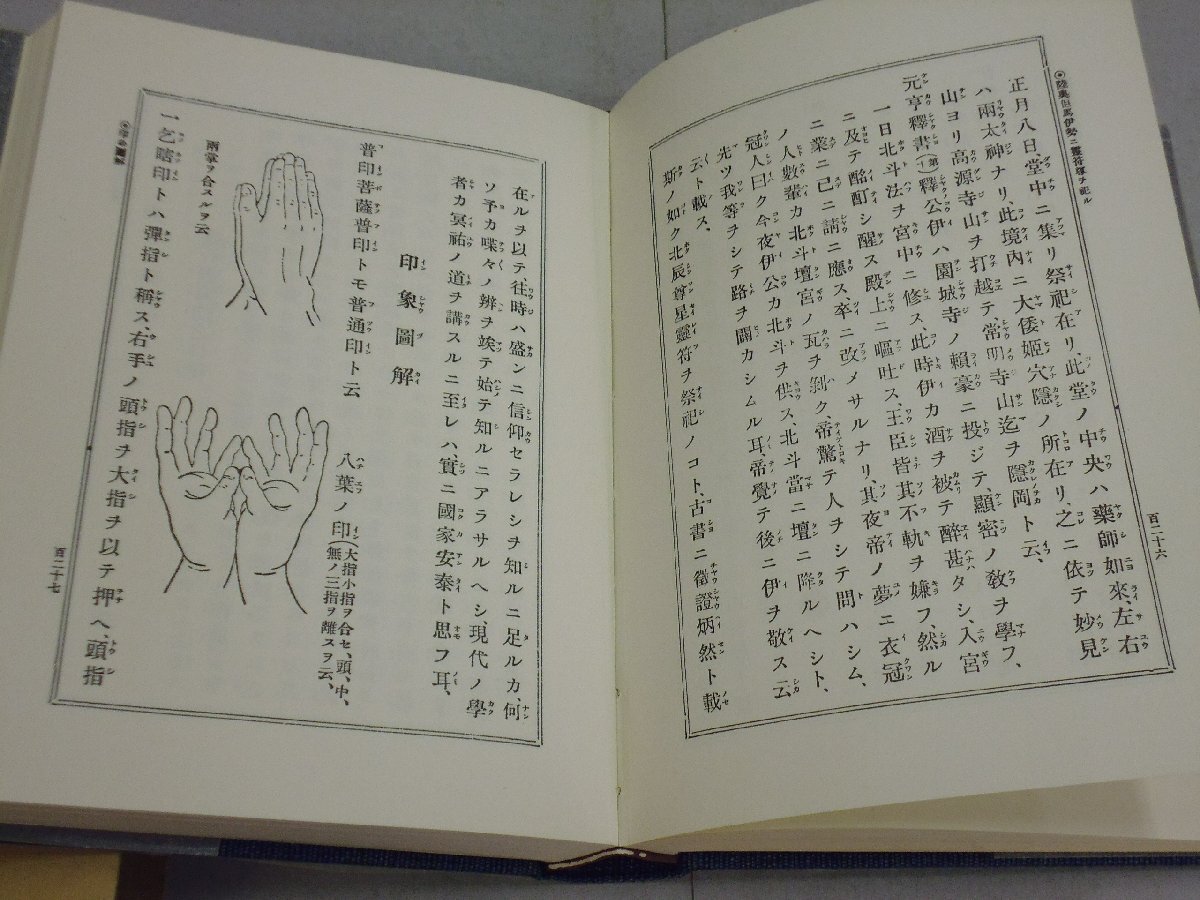 ◉陸奥但馬伊勢ニ靈符塚ヲ祀ル
正月八日、堂中ニ集リ祭祀在リ、此堂ノ中央ハ藥師如來、左右
ハ兩太神ナリ、此境内ニ大倭姬穴隱ノ所在リ、之ニ依テ妙見
山ヨリ高源寺山ヲ打越テ、常明寺山迄ヲ隱岡ト云、
元亨釋書(第一)釋公伊ハ園城寺ノ賴豪ニ投ジテ、顯密ノ敎ヲ學フ、
一日北斗法ヲ宮中ニ修ス、此時伊カ酒ヲ被テ醉甚タシ、入宮
ニ及テ酩酊シ醒ス殿上ニ嘔吐ス、王臣皆其不軌ヲ嫌フ、然ル
ニ業ニ已ニ請ニ應ス卒ニ改メサルナリ、其夜帝ノ夢ニ衣冠
ノ人數輩カ北斗壇宮ノ瓦ヲ剝ク、帝驚テ人ヲシテ問ハシム、
冠人曰ク今夜伊公カ北斗ヲ供ス、北斗當ニ壇ニ降ルヘシト、
先ツ我等ヲシテ路ヲ闢カシムル耳、帝覺テ後ニ伊ヲ敬ス云
云ト載ス、
斯ノ如ク北辰尊星靈符ヲ祭祀ノコト、古書ニ徵證炳然ト載
百二十六
在ルヲ以テ、往時ハ盛ンニ信仰セラレシヲ知ルニ足ルカ、何
ソ予カ喋々ノ辨ヲ竢テ始テ知ルニアラサルヘシ、現代ノ學
者カ冥祐ノ道ヲ講スルニ至レハ、實ニ國家安泰ト思フ耳、
印象圖解
普印菩薩普印トモ普通印ト云
八葉ノ印(大指小指ヲ合セ、頭、中、
無ノ三指ヲ離スヲ云、
兩掌ヲ合スルヲ云
一乞瞎印トハ彈指ト稱ス、右手ノ頭指ヲ大指ヲ以テ押ヘ、頭指
百二十七